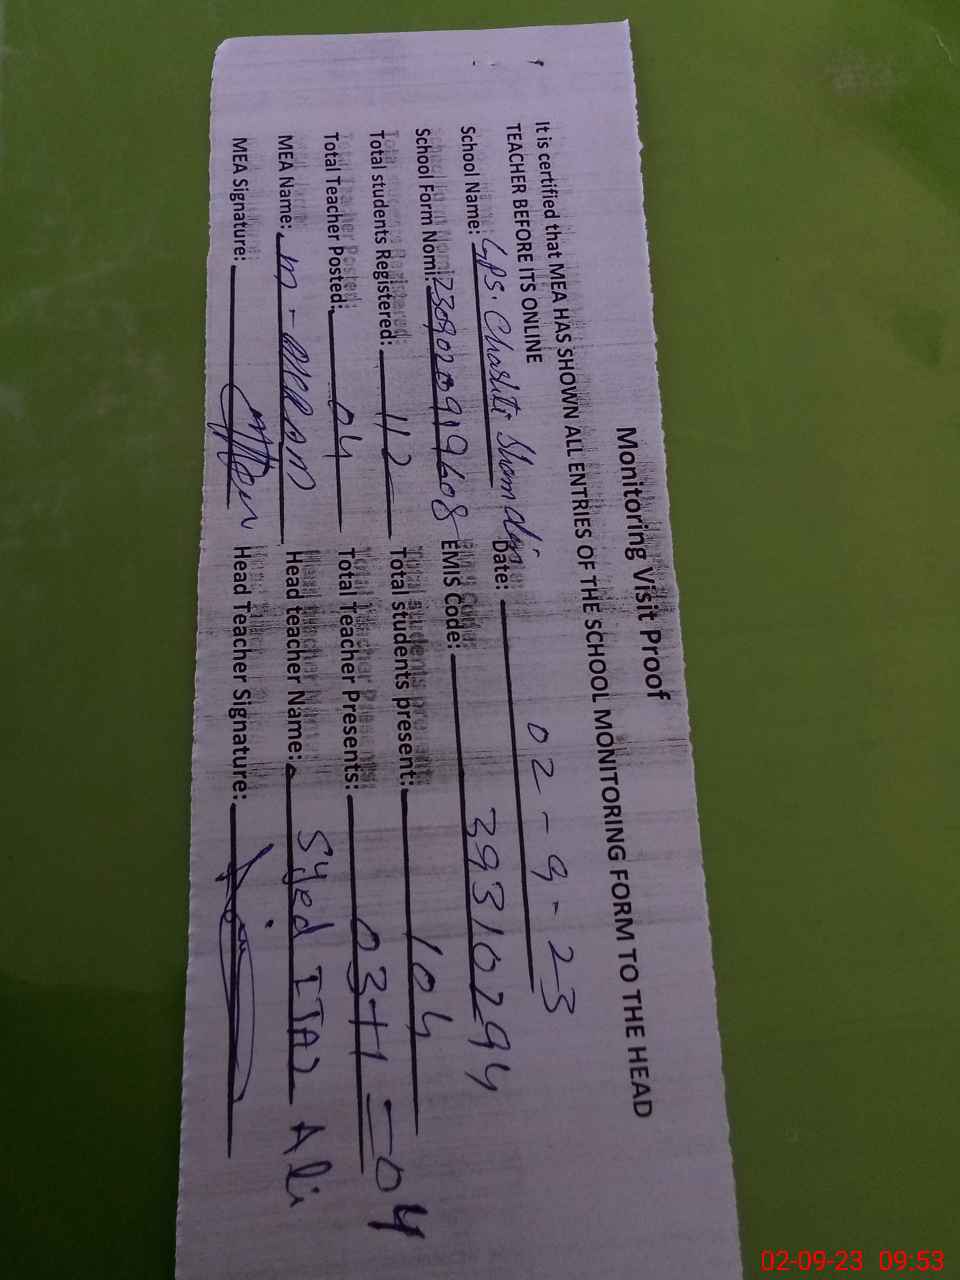 Monitoring Visit Proof
It is certified that MEA HAS SHOWN ALL ENTRIES OF THE SCHOOL MONITORING FORM TO THE HEAD
TEACHER BEFORE ITS ONLINE
School Name: GPS. Chashti Sham din Date: 02-9-23
School Form Nom: 2309020919608 EMIS Code: 39310294
Total students Registered: 112 Total students present: 104
Total Teacher Posted: 04 Total Teacher Presents: 03+1=04
MEA Name: M-AKRAM Head teacher Name: Syed IJAZ Ali
MEA Signature: Head Teacher Signature:
02-09-23 09:53